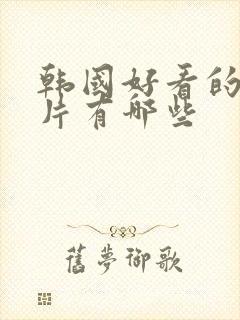 韩国好看的
片有哪些
舊夢御歌